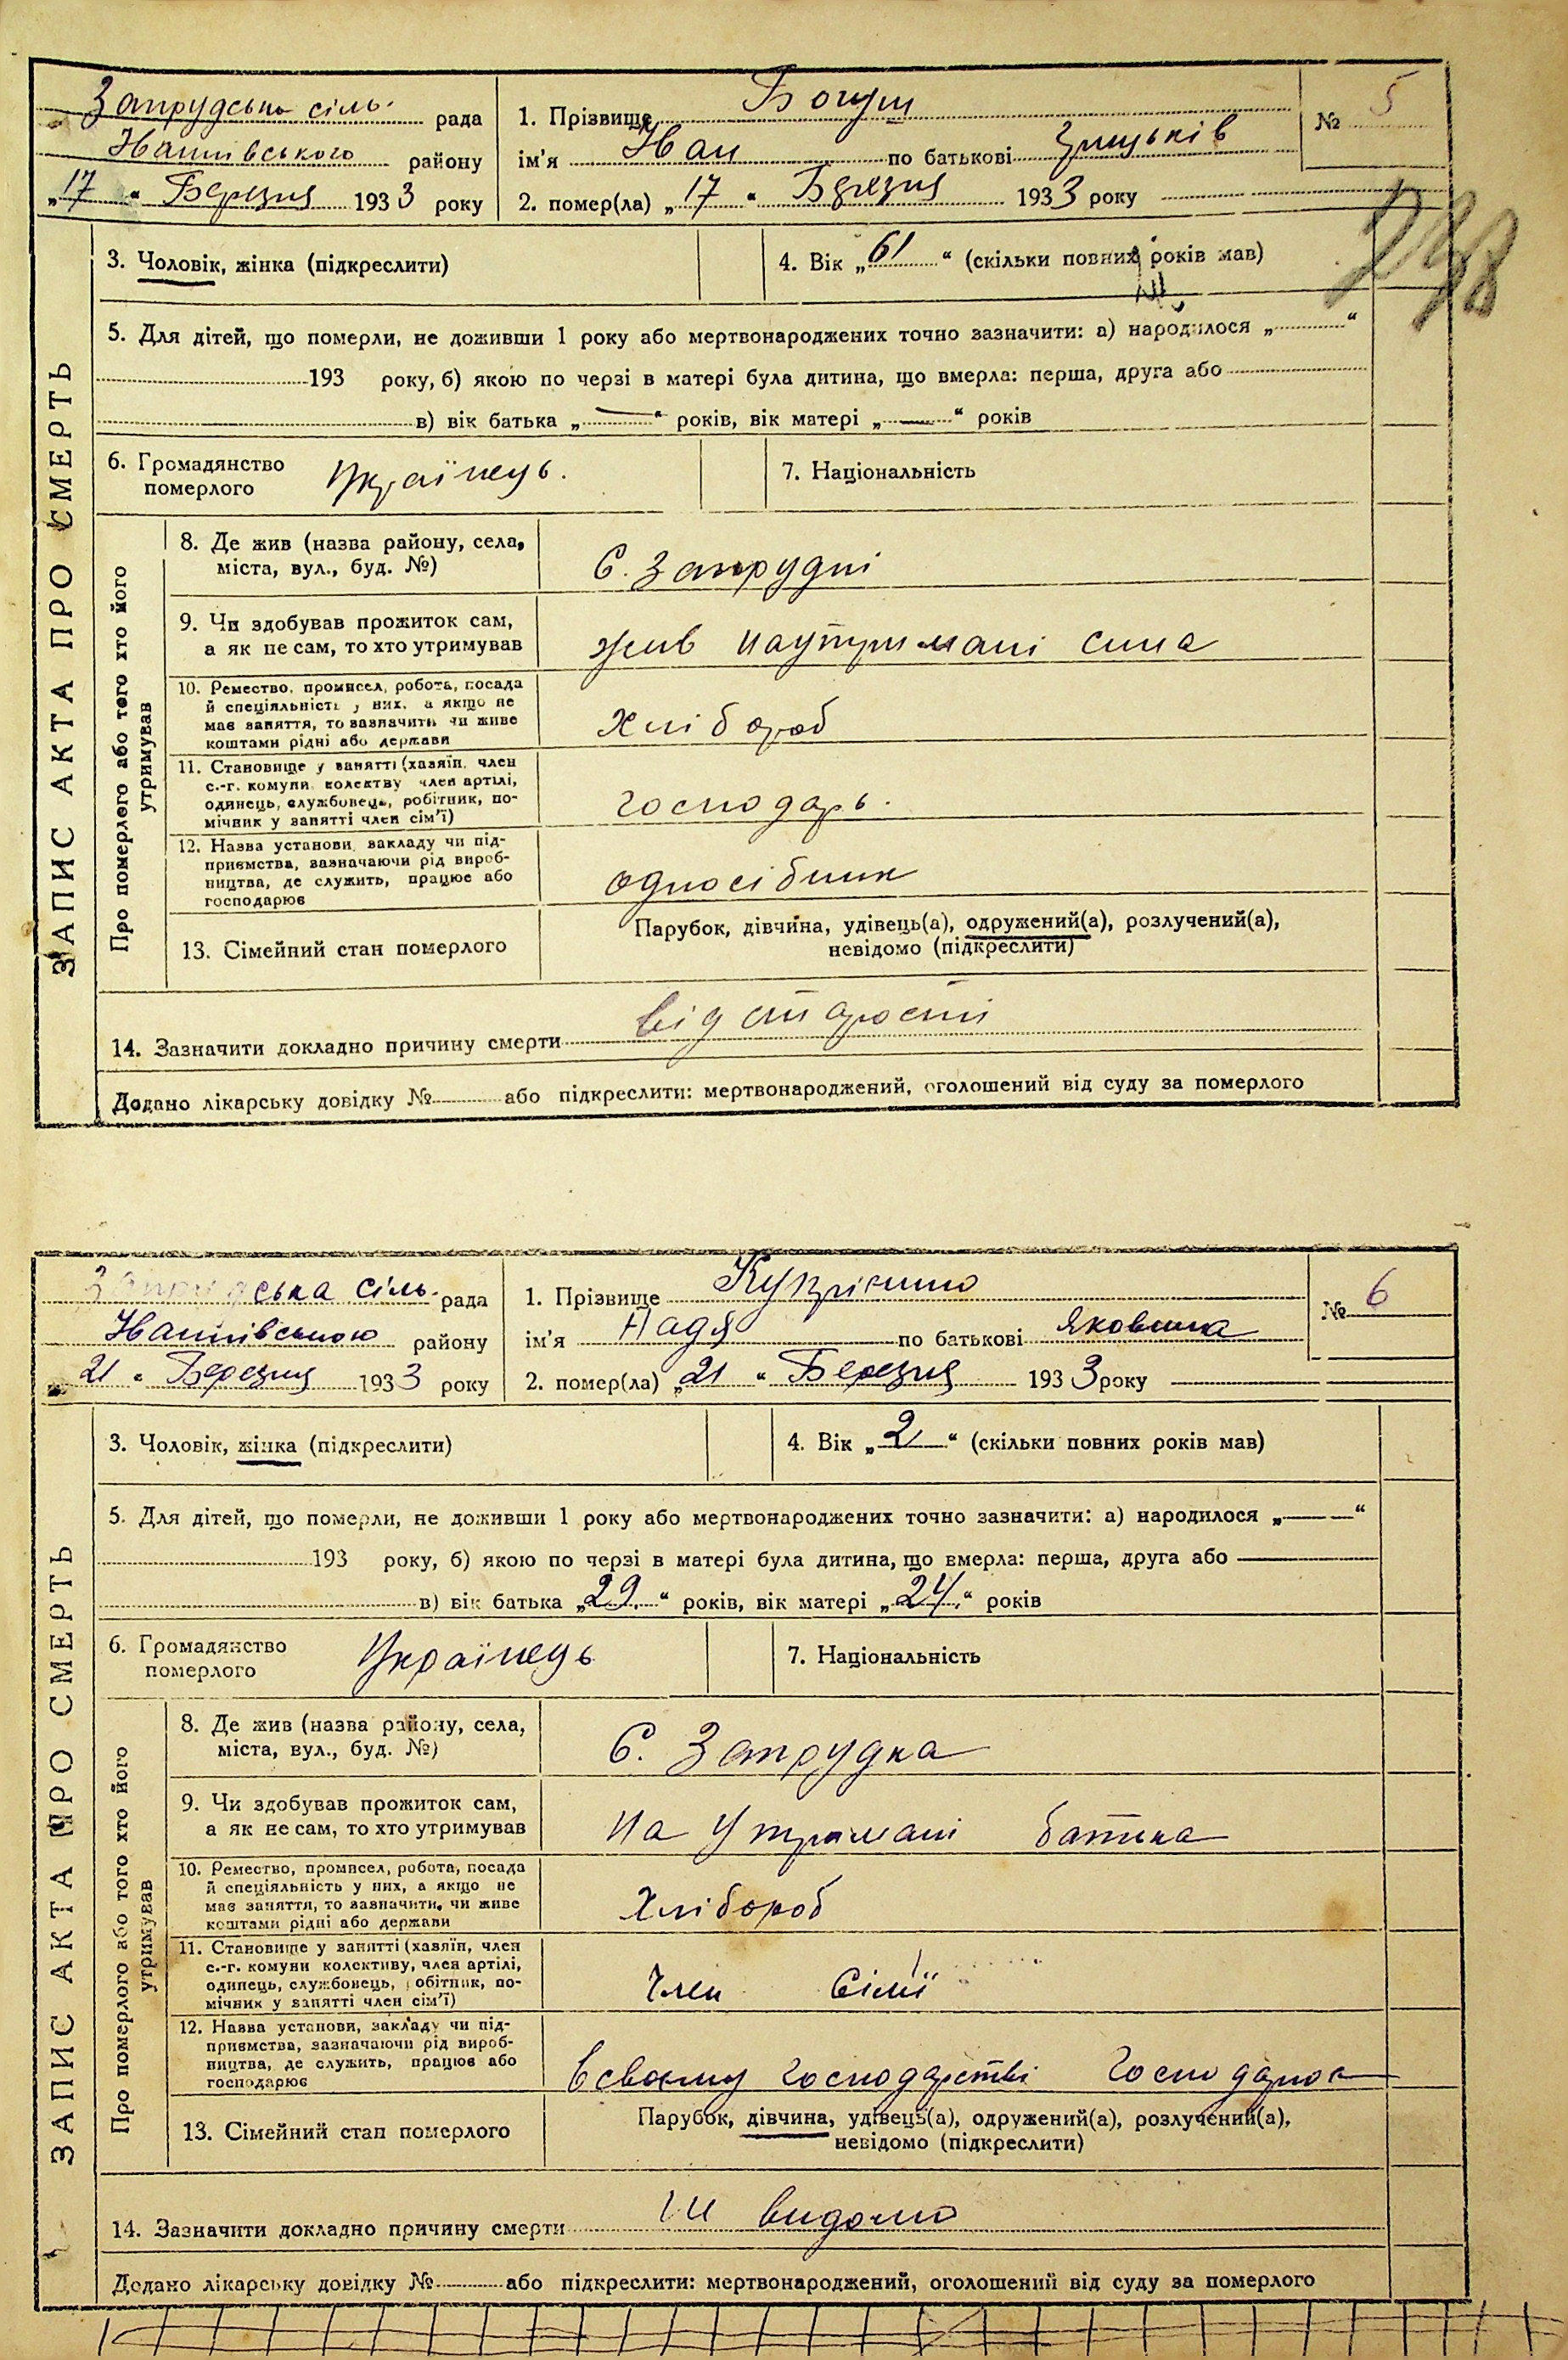 Запрудська сіль. рада
району
„17“ Березня 1933 року
1. Прізвище Богуш
ім'я Иван по батькові Грицьків
2. помер(ла) „17“ Березня 1933 року
№ 5
ЗАПИС АКТА ПРО СМЕРТЬ
3. Чоловік, жінка (підкреслити)
4. Вік „61“ (скільки повних років мав)
5. Для дітей, що померли, не доживши 1 року або мертвонароджених точно зазначити: а) народилося „ “
193 року, б) якою по черзі в матері була дитина, що вмерла: перша, друга або
в) вік батька „—“ років, вік матері „—“ років
6. Громадянство
померлого
Українець.
7. Національність
Про померлого або того хто його
утримував
8. Де жив (назва району, села,
міста, вул., буд. №)
С. Запрудні
9. Чи здобував прожиток сам,
а як не сам, то хто утримував
жив наутримані сина
10. Ремество, промисел, робота, посада
й спеціяльність у них, а якщо не
має заняття, то зазначити чи живе
коштами рідні або держави
Хлібороб
11. Становище у занятті (хазяїн, член
с.-г. комуни колективу член артілі,
одинець, службовець, робітник, по-
мічник у занятті член сім'ї)
господарь.
12. Назва установи закладу чи під-
приємства, зазначаючи рід вироб-
ництва, де служить, працює або
господарює
односібник
13. Сімейний стан померлого
Парубок, дівчина, удівець(а), одружений(а), розлучений(а),
невідомо (підкреслити)
14. Зазначити докладно причину смерти від старості
Додано лікарську довідку № або підкреслити: мертвонароджений, оголошений від суду за померлого
Запрудська сіль. рада
району
„21“ Березня 1933 року
1. Прізвище
ім'я Надя по батькові Яковина
2. помер(ла) „21“ Березня 1933 року
№ 6
ЗАПИС АКТА ПРО СМЕРТЬ
3. Чоловік, жінка (підкреслити)
4. Вік „2“ (скільки повних років мав)
5. Для дітей, що померли, не доживши 1 року або мертвонароджених точно зазначити: а) народилося „— —“
193 року, б) якою по черзі в матері була дитина, що вмерла: перша, друга або —
в) вік батька „29.“ років, вік матері „24.“ років
6. Громадянство
померлого
Українець
7. Національність
Про померлого або того хто його
утримував
8. Де жив (назва району, села,
міста, вул., буд. №)
С. Запрудка
9. Чи здобував прожиток сам,
а як не сам, то хто утримував
На утримані батька
10. Ремество, промисел, робота, посада
й спеціяльність у них, а якщо не
має заняття, то зазначити, чи живе
коштами рідні або держави
Хлібороб
11. Становище у занятті (хазяїн, член
с.-г. комуни колективу, член артілі,
одинець, службовець, робітник, по-
мічник у занятті член сім'ї)
Член Сімї
12. Назва установи, закладу чи під-
приємства, зазначаючи рід вироб-
ництва, де служить, працює або
господарює
Всвоєму господарстві
13. Сімейний стан померлого
Парубок, дівчина, удівець(а), одружений(а), розлучений(а),
невідомо (підкреслити)
14. Зазначити докладно причину смерти Ни видомо
Додано лікарську довідку № або підкреслити: мертвонароджений, оголошений від суду за померлого